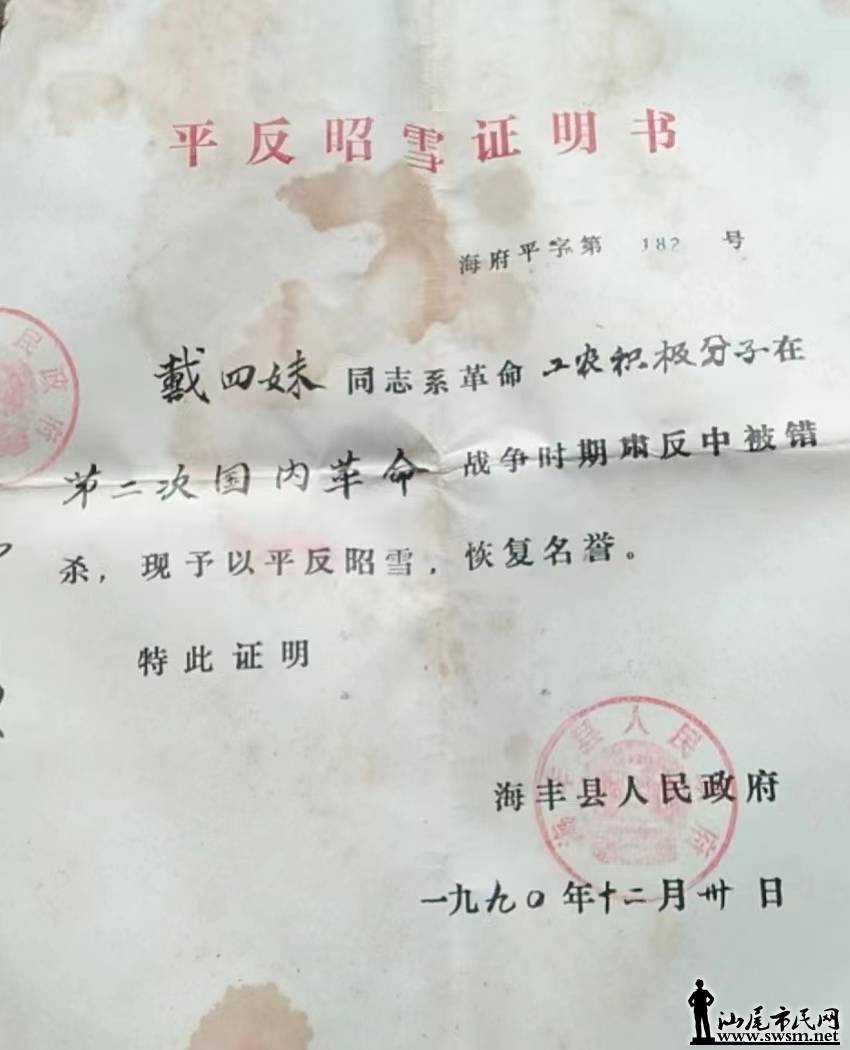 平反昭雪证明书
海府平字第 182 号
戴四妹 同志系革命 工农积极分子在
第二次国内革命 战争时期肃反中被错
杀，现予以平反昭雪，恢复名誉。
特此证明
海丰县人民政府
海丰县人民政府
一九九〇年十二月卅日
民政府
汕尾市民网
www.swsm.net